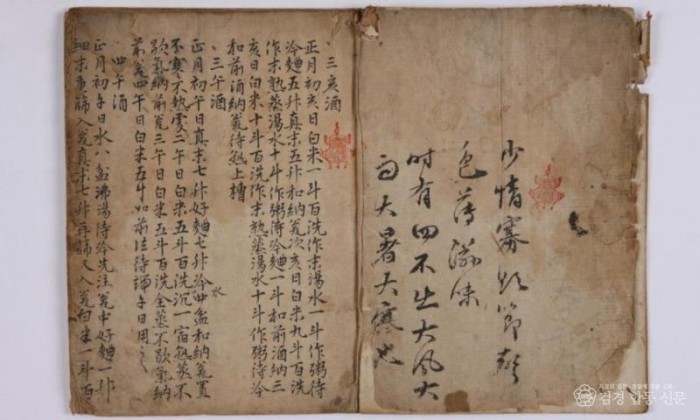 少情寡欲節聲
色薄滋味
時有四不出大風大
雨大暑大寒也
三亥酒
正月初亥日白米一斗百洗作末湯水一斗作粥待
冷麴五升真末五升和納瓮次亥日白米九斗百洗
作末熟蒸湯水十斗作粥待冷麴一斗和前酒納三
亥日白米十斗百洗作末熟蒸湯水十斗作粥待冷
和前酒納瓮待熟上槽
三午酒
正月初午日真末七升好麴七升冷水四盆和納瓮置
不寒不熱處二午日白米五斗百洗沉一宿熟蒸不
歇氣納前瓮三午日白米五斗百洗全蒸不歇氣納
前瓮四午日白米五斗如前法待端午日用之
四午酒
正月初午日水八盆沸湯待冷先注瓮中好麴一升
細末重篩入瓮真末七升再篩又入瓮白米一斗百
검경 합동 신문